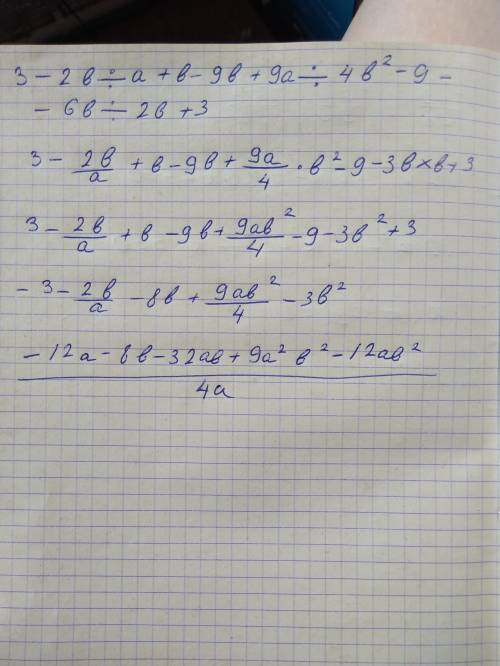 3 - 2в ÷ a + в - 9в + 9a ÷ 4в² - 9 -
- 6в ÷ 2в + 3
3 - 2в/a + в - 9в + 9a/4 · в² - 9 - 3в × в + 3
3 - 2в/a + в - 9в + 9aв²/4 - 9 - 3в² + 3
- 3 - 2в/a - 8в + 9aв²/4 - 3в²
(- 12a - 8в - 32aв + 9a²в² - 12aв²)/4a